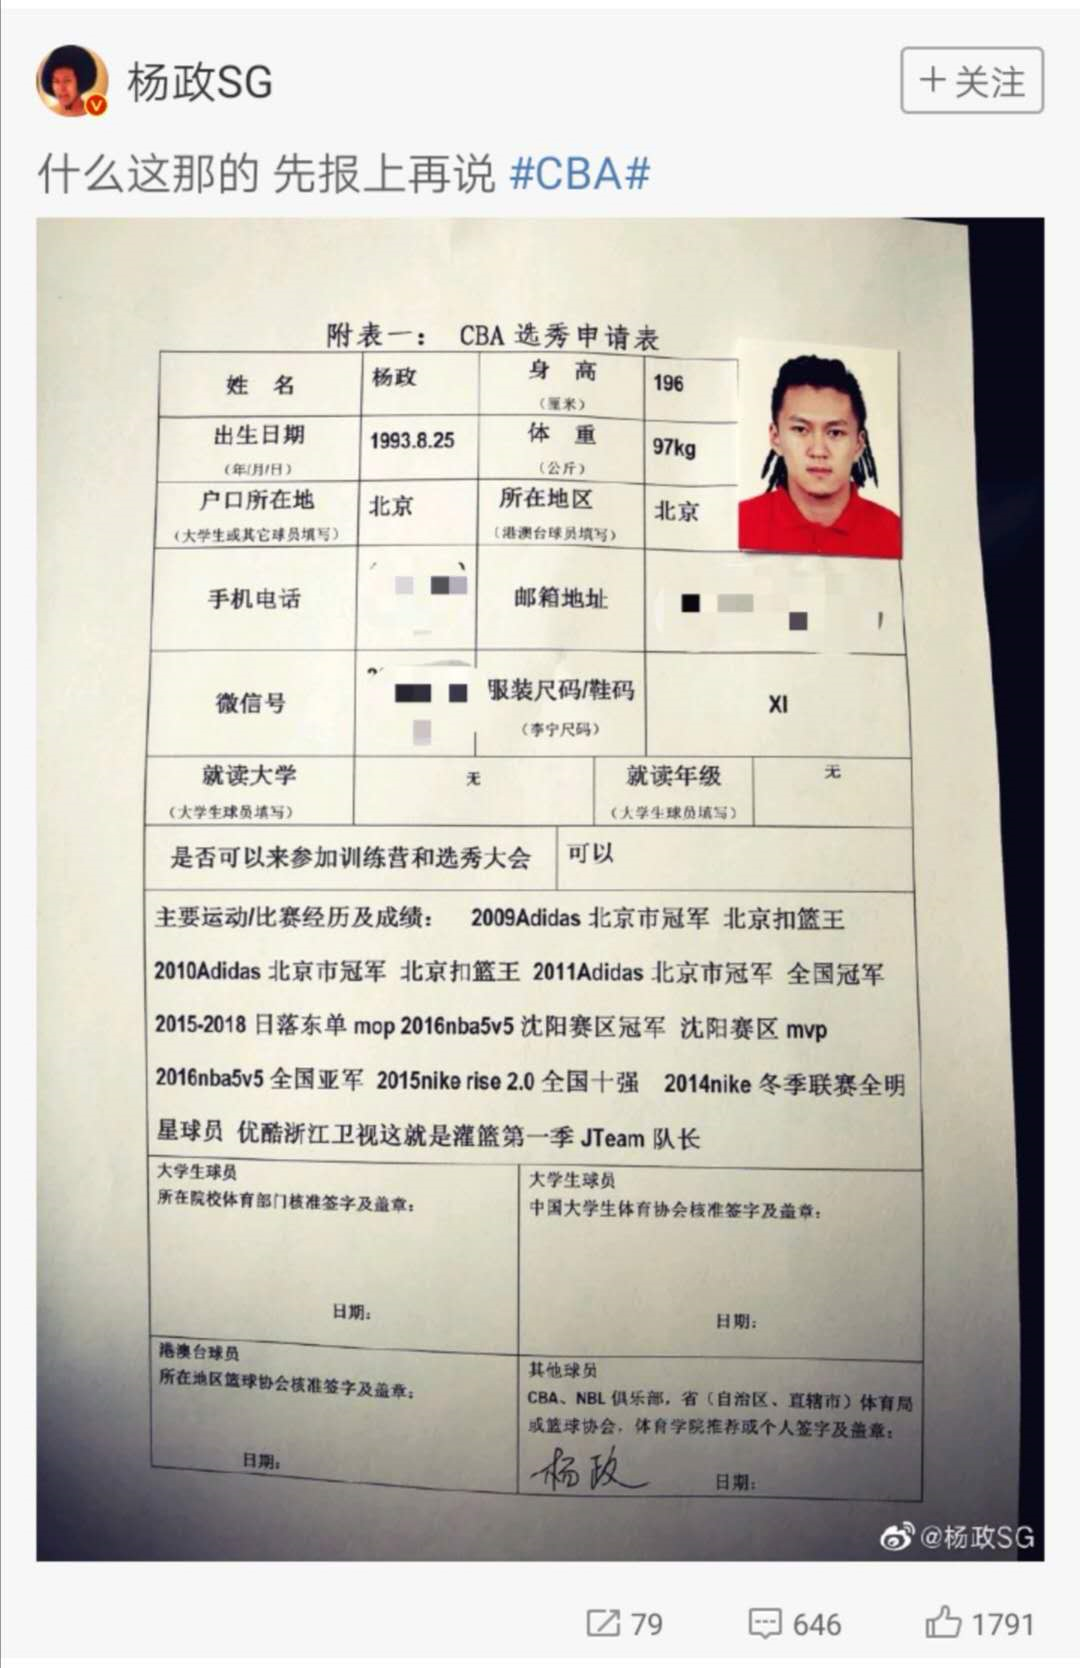 杨政SG
+关注
什么这那的 先报上再说 #CBA#
附表一: CBA 选秀申请表
姓 名 杨政 身 高 196
(厘米)
出生日期 1993.8.25 体 重 97kg
(年/月/日) (公斤)
户口所在地 北京 所在地区 北京
(大学生或其它球员填写) (港澳台球员填写)
手机电话 邮箱地址
微信号 服装尺码/鞋码 Xl
(李宁尺码)
就读大学 无 就读年级 无
(大学生球员填写) (大学生球员填写)
是否可以来参加训练营和选秀大会 可以
主要运动/比赛经历及成绩: 2009Adidas 北京市冠军 北京扣篮王
2010Adidas 北京市冠军 北京扣篮王 2011Adidas 北京市冠军 全国冠军
2015-2018 日落东单 mop 2016nba5v5 沈阳赛区冠军 沈阳赛区 mvp
2016nba5v5 全国亚军 2015nike rise 2.0 全国十强 2014nike 冬季联赛全明
星球员 优酷浙江卫视这就是灌篮第一季 JTeam 队长
大学生球员
所在院校体育部门核准签字及盖章:
日期:
大学生球员
中国大学生体育协会核准签字及盖章:
日期:
港澳台球员
所在地区篮球协会核准签字及盖章:
日期:
其他球员
CBA、NBL 俱乐部,省(自治区、直辖市)体育局
或篮球协会,体育学院推荐或个人签字及盖章:
杨政 日期:
@杨政SG
79 646 1791